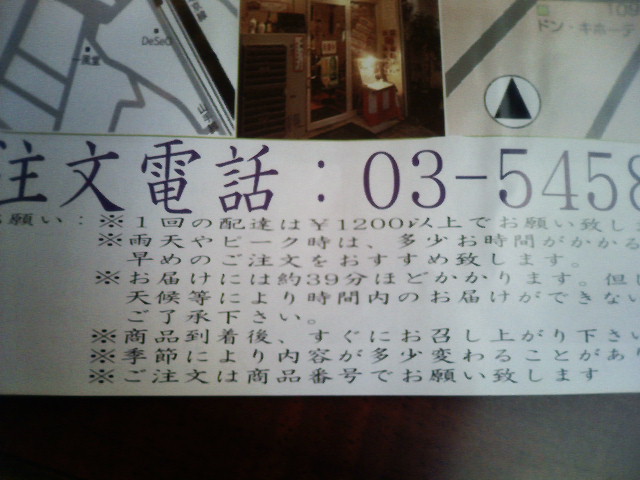 DeSeO
一風堂
109
ドン・キホーテ
注文電話：03-5458
お願い：※1回の配達は￥1200以上でお願い致しま
※雨天やピーク時は、多少お時間がかかる
早めのご注文をおすすめ致します。
※お届けには約39分ほどかかります。但し
天候等により時間内のお届けができない
ご了承下さい。
※商品到着後、すぐにお召し上がり下さい
※季節により内容が多少変わることがあり
※ご注文は商品番号でお願い致します